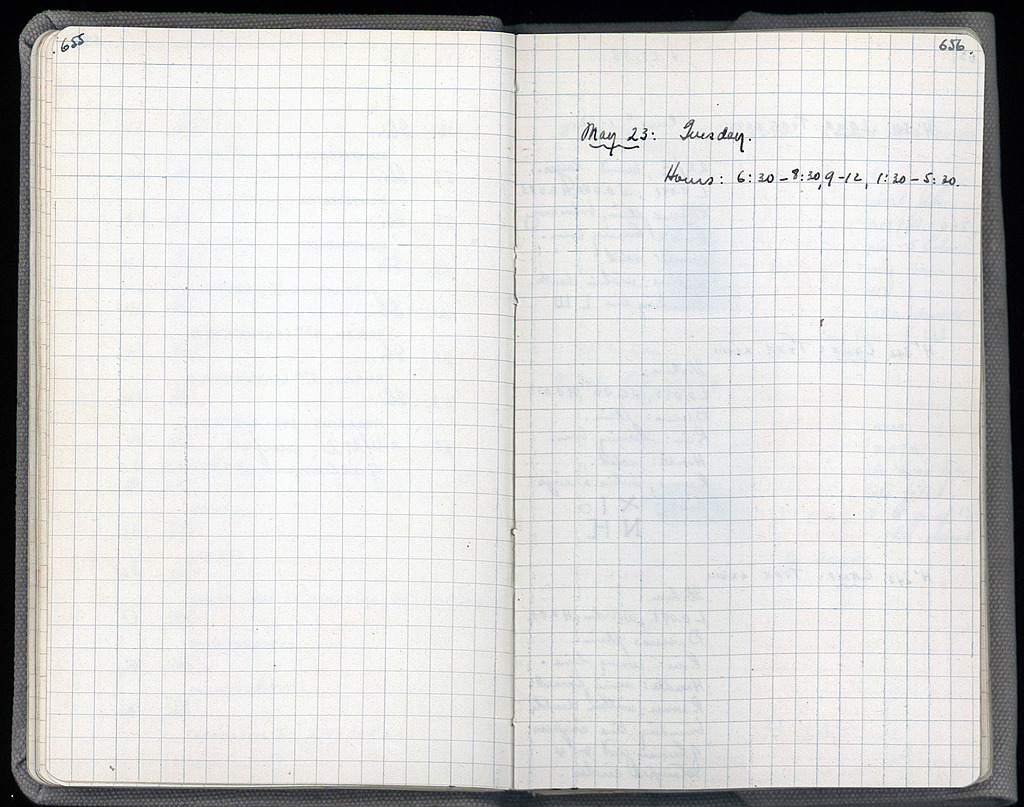 655
656.
May 23: Tuesday.
Hours: 6:30-8:30, 9-12, 1:30-5:30.